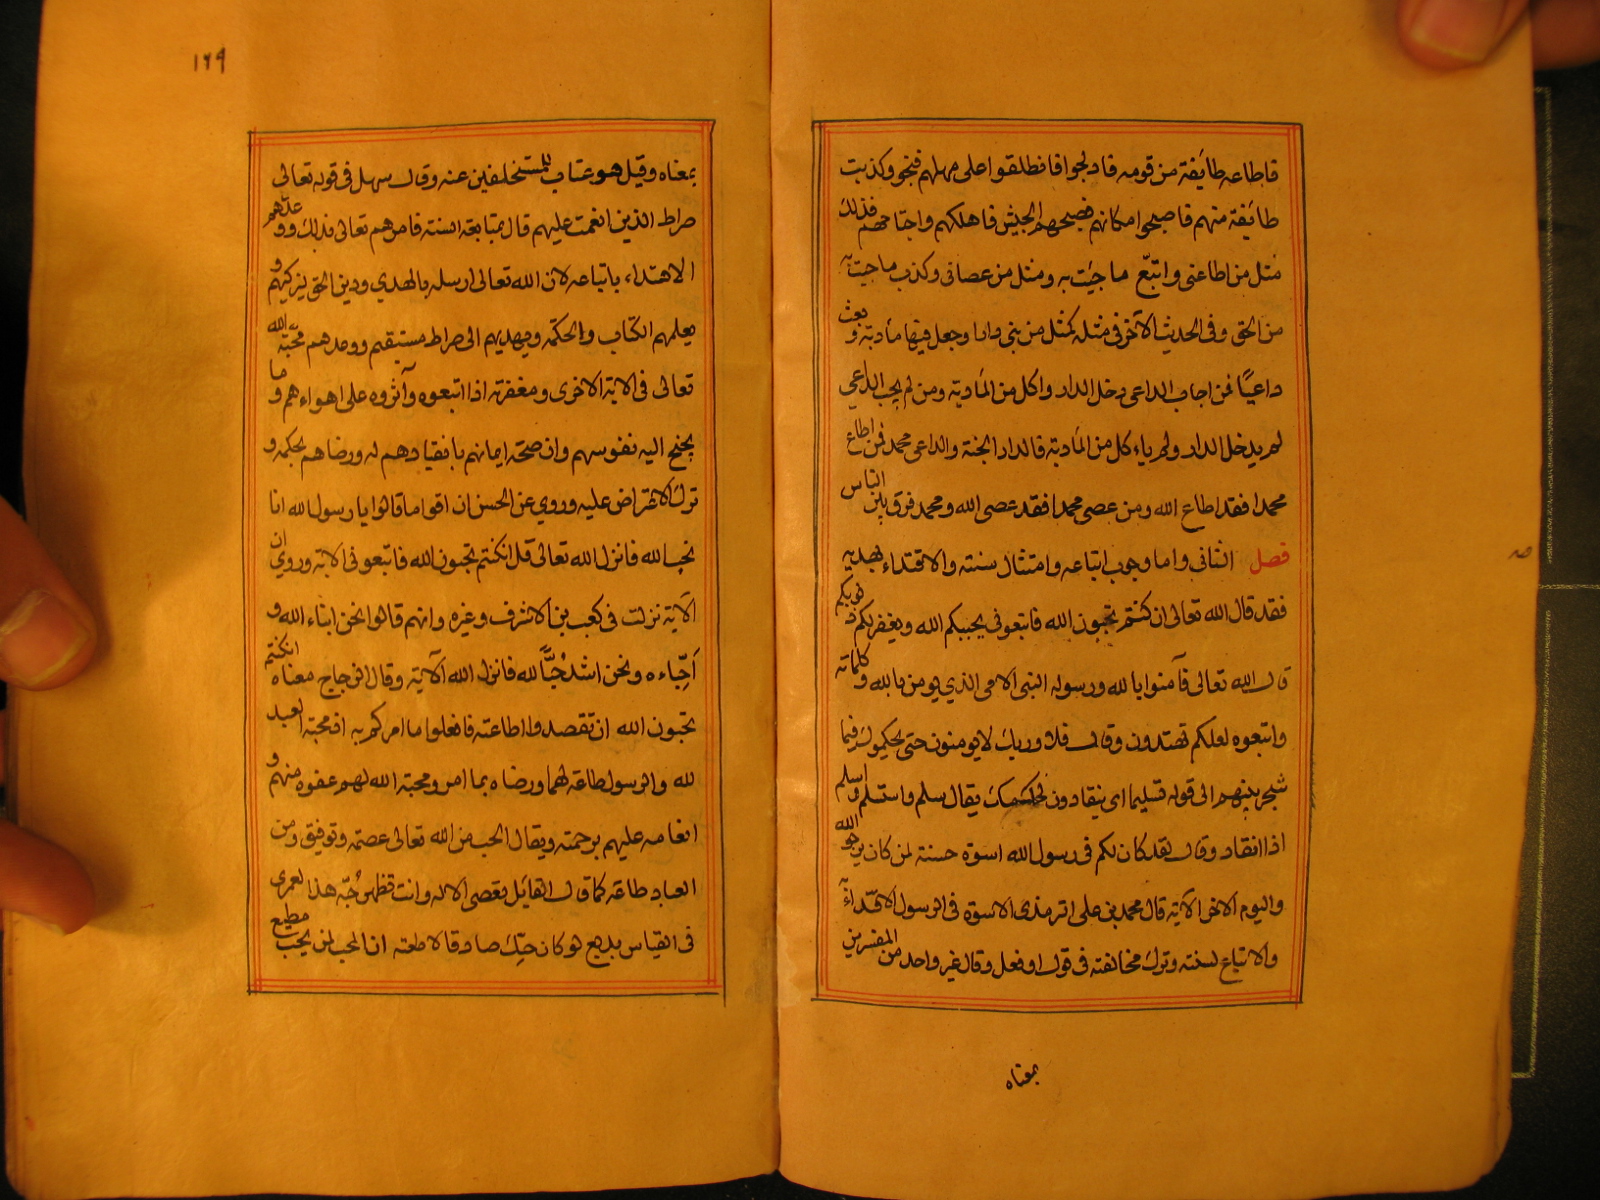 فاطاعه طائفة من قومه فادلجوا فانطلقوا على مهلهم فنجوا وكذبت
طائفة منهم فاصبحوا مكانهم فصبحهم الجيش فاهلكهم واجتاحهم فذلك
مثل من اطاعني واتبع ما جئت به ومثل من عصاني وكذب ما جئت به
من الحق وفي الحديث الآخر في مثله كمثل من بنى دارا وجعل فيها مأدبة وبعث
داعيا فمن اجاب الداعي دخل الدار واكل من المأدبة ومن لم يجب الداعي
لم يدخل الدار ولم ياءكل من المأدبة فالدار الجنة والداعي محمد فمن اطاع
محمدا فقد اطاع الله ومن عصى محمدا فقد عصى الله ومحمد فرق بين الناس
فصل الثاني واما وجوب اتباعه وامتثال سنته والاقتداء بهديه
فقد قال الله تعالى ان كنتم تحبون الله فاتبعوني يحببكم الله ويغفر لكم ذنوبكم
قال الله تعالى فآمنوا بالله ورسوله النبي الامي الذي يومن بالله وكلماته
واتبعوه لعلكم تهتدون وقال فلا وربك لا يومنون حتى يحكموك فيما
شجر بينهم الى قوله تسليما اي ينقادون لحكمك يقال سلم واستسلم واسلم
اذا انقاد وقال لقد كان لكم في رسول الله اسوة حسنة لمن كان يرجو الله
واليوم الآخر الآية قال محمد بن علي الترمذي الاسوة في الرسول الاقتداء
والاتباع لسنته وترك مخالفته في قول او فعل وقال غير واحد من المفسرين
بمعناه
١٦٩
بمعناه وقيل هو عتاب للمتخلفين عنه وقال سهل في قوله تعالى
صراط الذين انعمت عليهم قال بمتابعة السنة فامرهم تعالى بذلك ووعدهم
الاهتداء باتباعه لان الله تعالى ارسله بالهدي ودين الحق ليزكيهم و
يعلمهم الكتاب والحكمة ويهديهم الى صراط مستقيم ووعدهم محبة الله
تعالى في الاية الاخرى ومغفرته اذا اتبعوه وآثروه على اهواءهم وما
يجنح اليه نفوسهم وان صحة ايمانهم بانقيادهم له ورضاهم بحكمه و
ترك الاعتراض عليه وروي عن الحسن ان اقواما قالوا يا رسول الله انا
نحب الله فانزل الله تعالى قل ان كنتم تحبون الله فاتبعوني الاية وروي ان
الآية نزلت في كعب بن الاشرف وغيره وانهم قالوا نحن ابناء الله و
أحباءه ونحن اشد حبًا لله فانزل الله الآية وقال الزجاج معناه ان كنتم
تحبون الله ان تقصدوا اطاعته فافعلوا ما امركم به اذ محبة العبد
لله والرسول طاعة لهما ورضاه بما امر ومحبة الله لهم عفوه منهم و
انعامه عليهم برحمته ويقال الحب من الله تعالى عصمة وتوفيق ومن
العباد طاعة كما قال القايل تعصي الاله وانت تظهر حبه هذا لعمري
في القياس بديع لو كان حبك صادقا لاطعته ان المحب لمن يحب مطيع